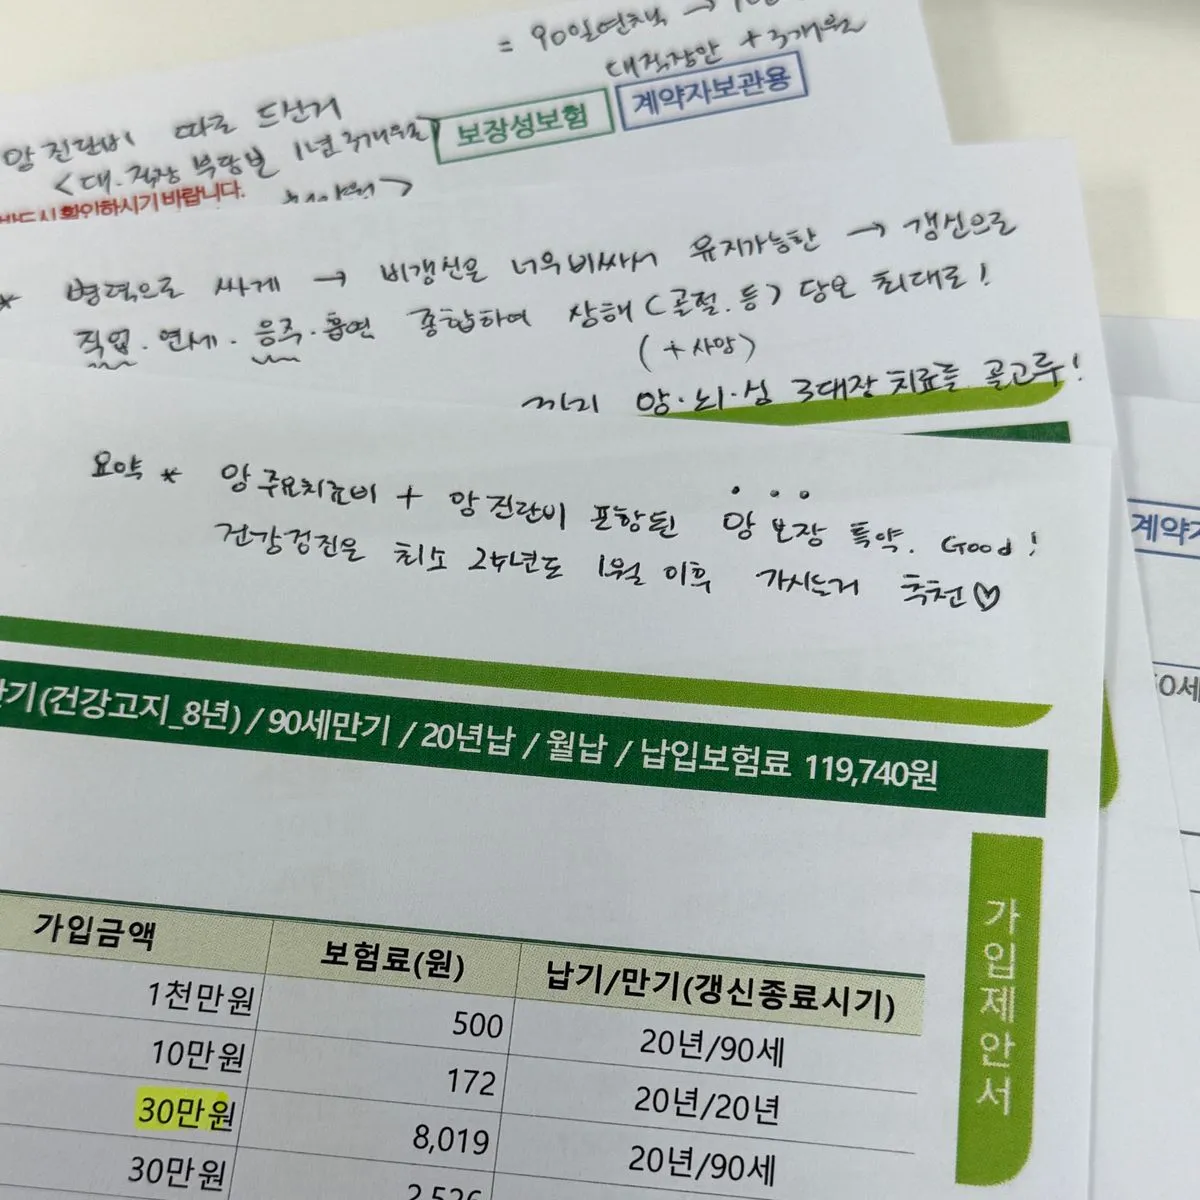 = 90일면책 →
대직장안 + 3개월
암 진단비 따로 드신거
<대.직장 부담보 1년 3개월
보장성보험
계약자보관용
반드시 확인하시기 바랍니다.
* 병력으로 싸게 → 비갱신은 너무비싸서 유지가능한 → 갱신으로
직업. 연세. 음주. 흡연 종합하여 상해(골절.등) 당연 최대로!
(+사망)
까지 암.뇌.심 3대장 치료를 골고루!
요약 * 암주요치료비 + 암진단비 포함된 암보장 특약. Good!
건강검진은 최소 24년도 1월 이후 가시는거 추천♡
계약자
만기(건강고지_8년) / 90세만기 / 20년납 / 월납 / 납입보험료 119,740원
가입제안서
가입금액 보험료(원) 납기/만기(갱신종료시기)
1천만원 500 20년/90세
10만원 172 20년/20년
30만원 8,019 20년/90세
30만원 2,526